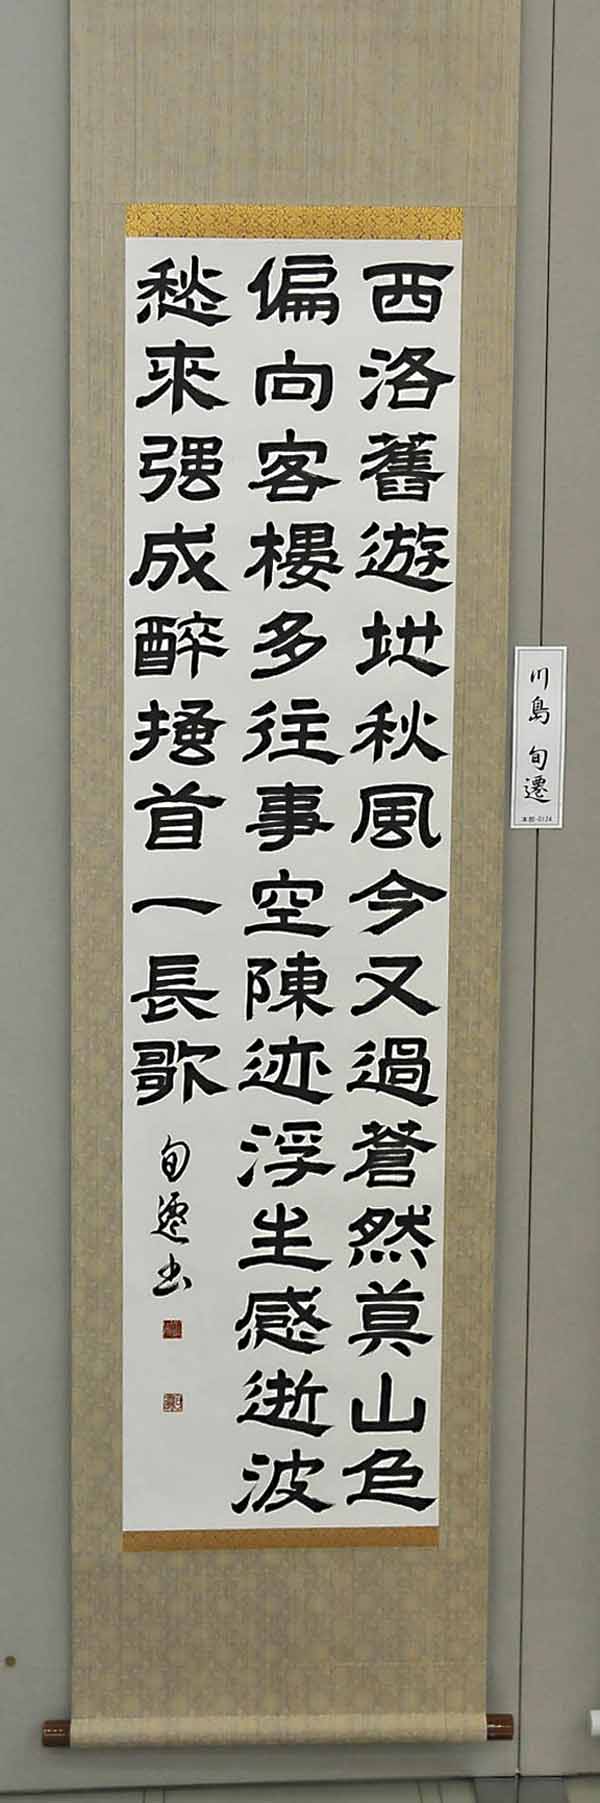 西洛舊遊地秋風今又過蒼然莫山色
偏向客樓多往事空陳迹浮生感逝波
愁来强成醉搔首一長歌
旬遷書
川島 旬遷